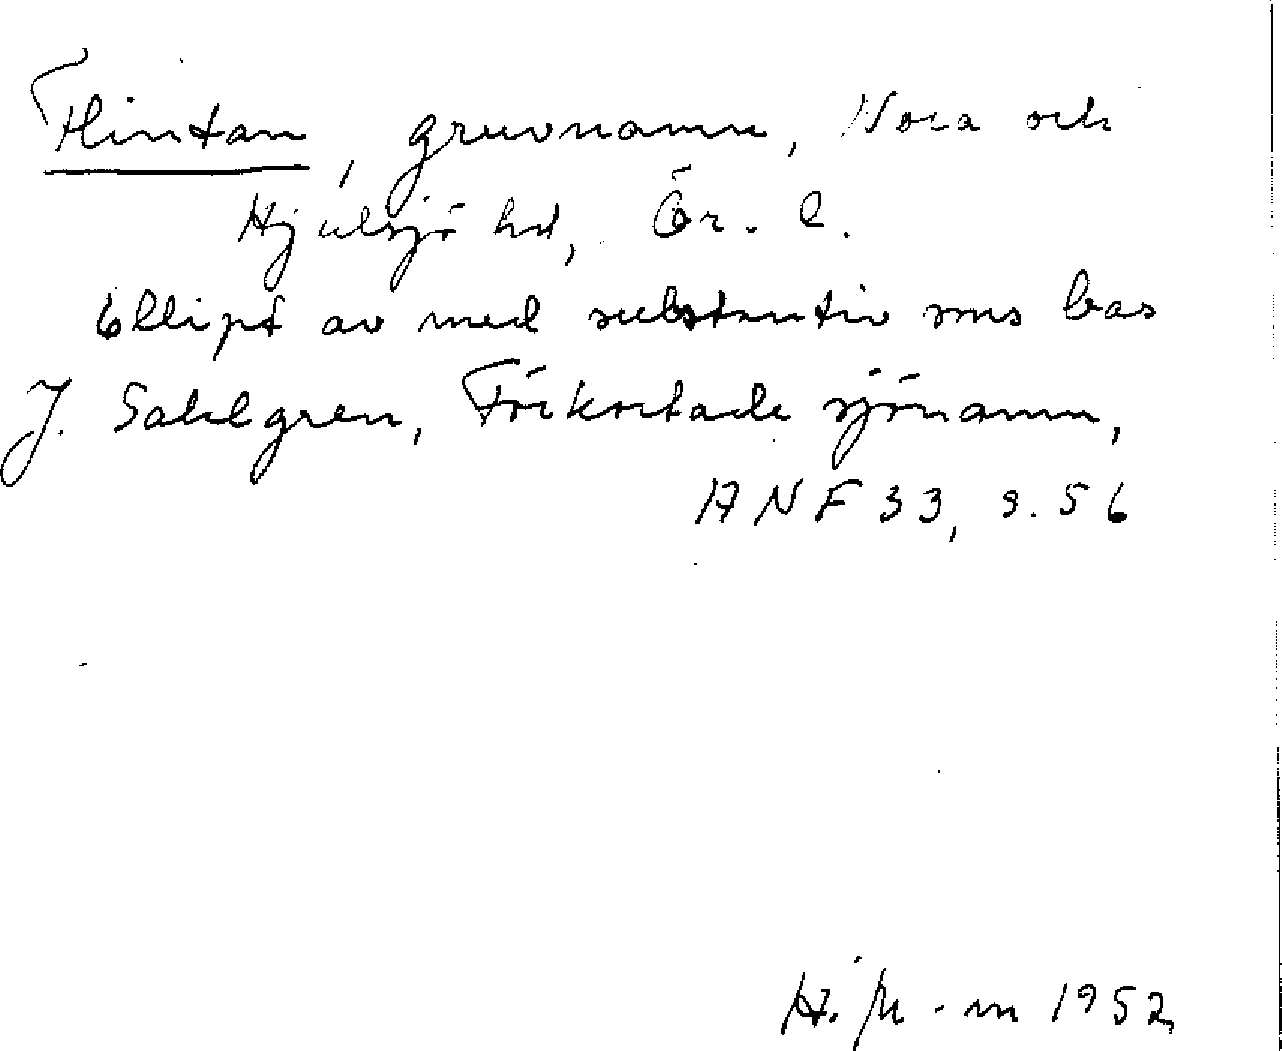 Flintan, gruvnamn, Nora och
Hjulsjö hd, Ör. l.
Ellips av med substantiv sms bas
J. Sahlgren, Förkortade sjönamn,
ANF 33, s. 56
H. M-m 1952